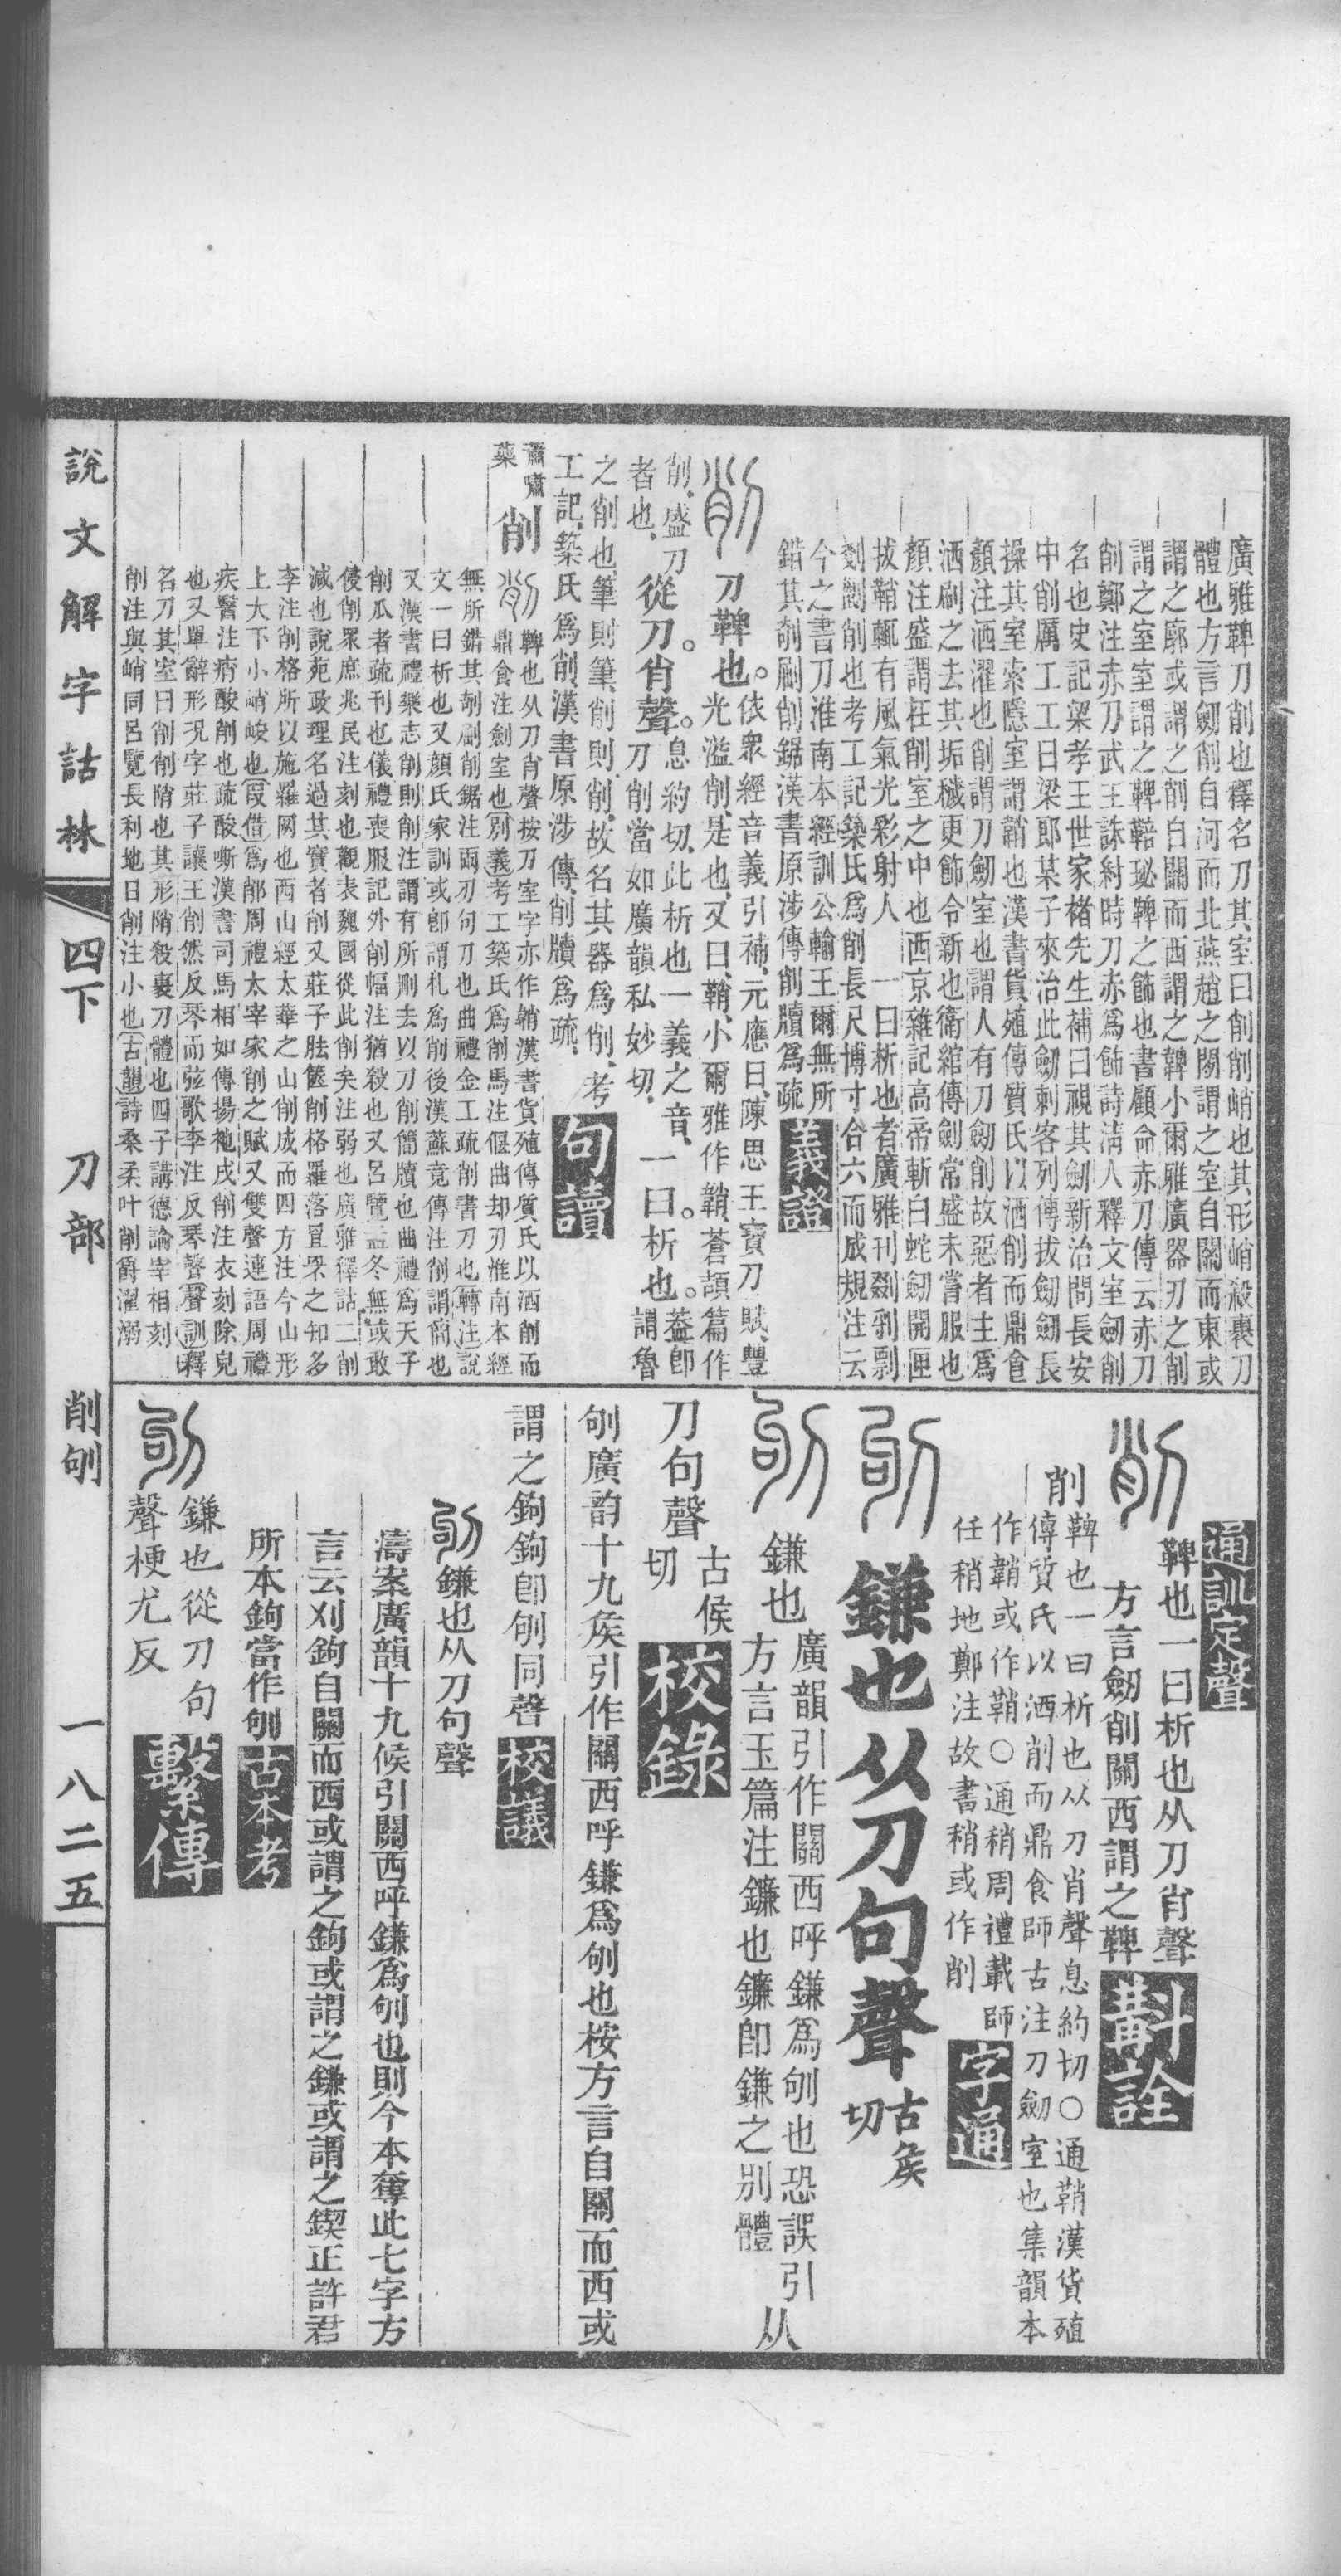 廣雅鞞刀削也釋名刀其室曰削削峭也其形峭殺裹刀
體也方言劒削自河而北燕趙之閒謂之室自關而東或
謂之廓或謂之削自關而西謂之鞞小爾雅廣器刃之削
謂之室室謂之鞞鞛珌鞞之飾也書顧命赤刀傳云赤刀
削鄭注赤刀武王誅紂時刀赤爲飾詩淸人釋文室劒削
名也史記梁孝王世家褚先生補曰視其劒新治問長安
中削厲工工曰梁郎某子來治此劒刺客列傳拔劒劒長
操其室索隱室謂鞘也漢書貨殖傳質氏以洒削而鼎食
顏注洒濯也削謂刀劒室也謂人有刀劒削故惡者主爲
洒刷之去其垢穢更飾令新也衛綰傳劍常盛未嘗服也
顏注盛謂在削室之中也西京雜記高帝斬白蛇劒開匣
拔鞘輒有風氣光彩射人　一曰析也者廣雅刊剟剥剽
劖劀削也考工記築氏爲削長尺博寸合六而成規注云
今之書刀淮南本經訓公輸王爾無所
錯其剞剧削鋸漢書原涉傳削牘爲疏 義證
削 刀鞞也。依衆經音義引補、元應曰、陳思王寶刀賦、豐
光溢削、是也、又曰、鞘、小爾雅作鞘、蒼頡篇作
削、盛刀
者也、 從刀。肖聲。息約切、此析也一義之音、一曰析也。葢卽
刀削當如廣韻私妙切、 謂魯
之削也、筆則筆、削則削、故名其器爲削、考
工記、築氏爲削、漢書原涉傳、削牘爲疏、 句讀
蕭嘯
藥 削 鞞也从刀肖聲按刀室字亦作鞘漢書貨殖傳質氏以洒削而
鼎食注劍室也別義考工築氏爲削馬注偃曲却刃淮南本經
無所錯其剞剧削鋸注兩刃句刀也曲禮金工疏削書刀也轉注說
文一曰析也又顏氏家訓或卽謂札爲削後漢蘇竟傳注削謂簡也
又漢書禮樂志削則削注謂有所刪去以刀削簡牘也曲禮爲天子
削瓜者疏刊也儀禮喪服記外削幅注猶殺也又呂覽孟冬無或敢
侵削衆庶兆民注刻也觀表魏國從此削矣注弱也廣雅釋詁二削
減也說苑政理名過其實者削又莊子胠篋削格羅落罝罘之知多
李注削格所以施羅網也西山經太華之山削成而四方注今山形
上大下小峭峻也假借爲郮周禮太宰家削之賦又雙聲連語周禮
疾醫注痟酸削也疏酸嘶漢書司馬相如傳揚袘戌削注衣刻除皃
也又單辭形況字莊子讓王削然反琴而弦歌李注反琴聲聲訓釋
名刀其室曰削削陗也其形陗殺裹刀體也四子講德論宰相刻
削注與峭同呂覽長利地日削注小也古韻詩桑柔叶削爵濯溺
通訓定聲
削 鞞也一曰析也从刀肖聲
方言劒削關西謂之鞞 斠詮
削 鞞也一曰析也从刀肖聲息約切〇通鞘漢貨殖
傳質氏以洒削而鼎食師古注刀劒室也集韻本
作韒或作鞘〇通稍周禮載師
任稍地鄭注故書稍或作削 字通
刏 鎌也从刀句聲 古矦
切
鎌也 廣韻引作關西呼鎌爲刏也恐誤引
方言玉篇注鐮也鐮卽鎌之別體 从
刀句聲 古候
切 校錄
刏廣韵十九矦引作關西呼鎌爲刏也桉方言自關而西或
謂之鉤鉤卽刏同聲 校議
鎌也从刀句聲
濤案廣韻十九候引關西呼鎌爲刏也則今本奪此七字方
言云刈鉤自關而西或謂之鉤或謂之鎌或謂之鍥正許君
所本鉤當作刏 古本考
鎌也從刀句
聲梗尤反 繫傳
說文解字詁林 四下 刀部 削刏 一八二五